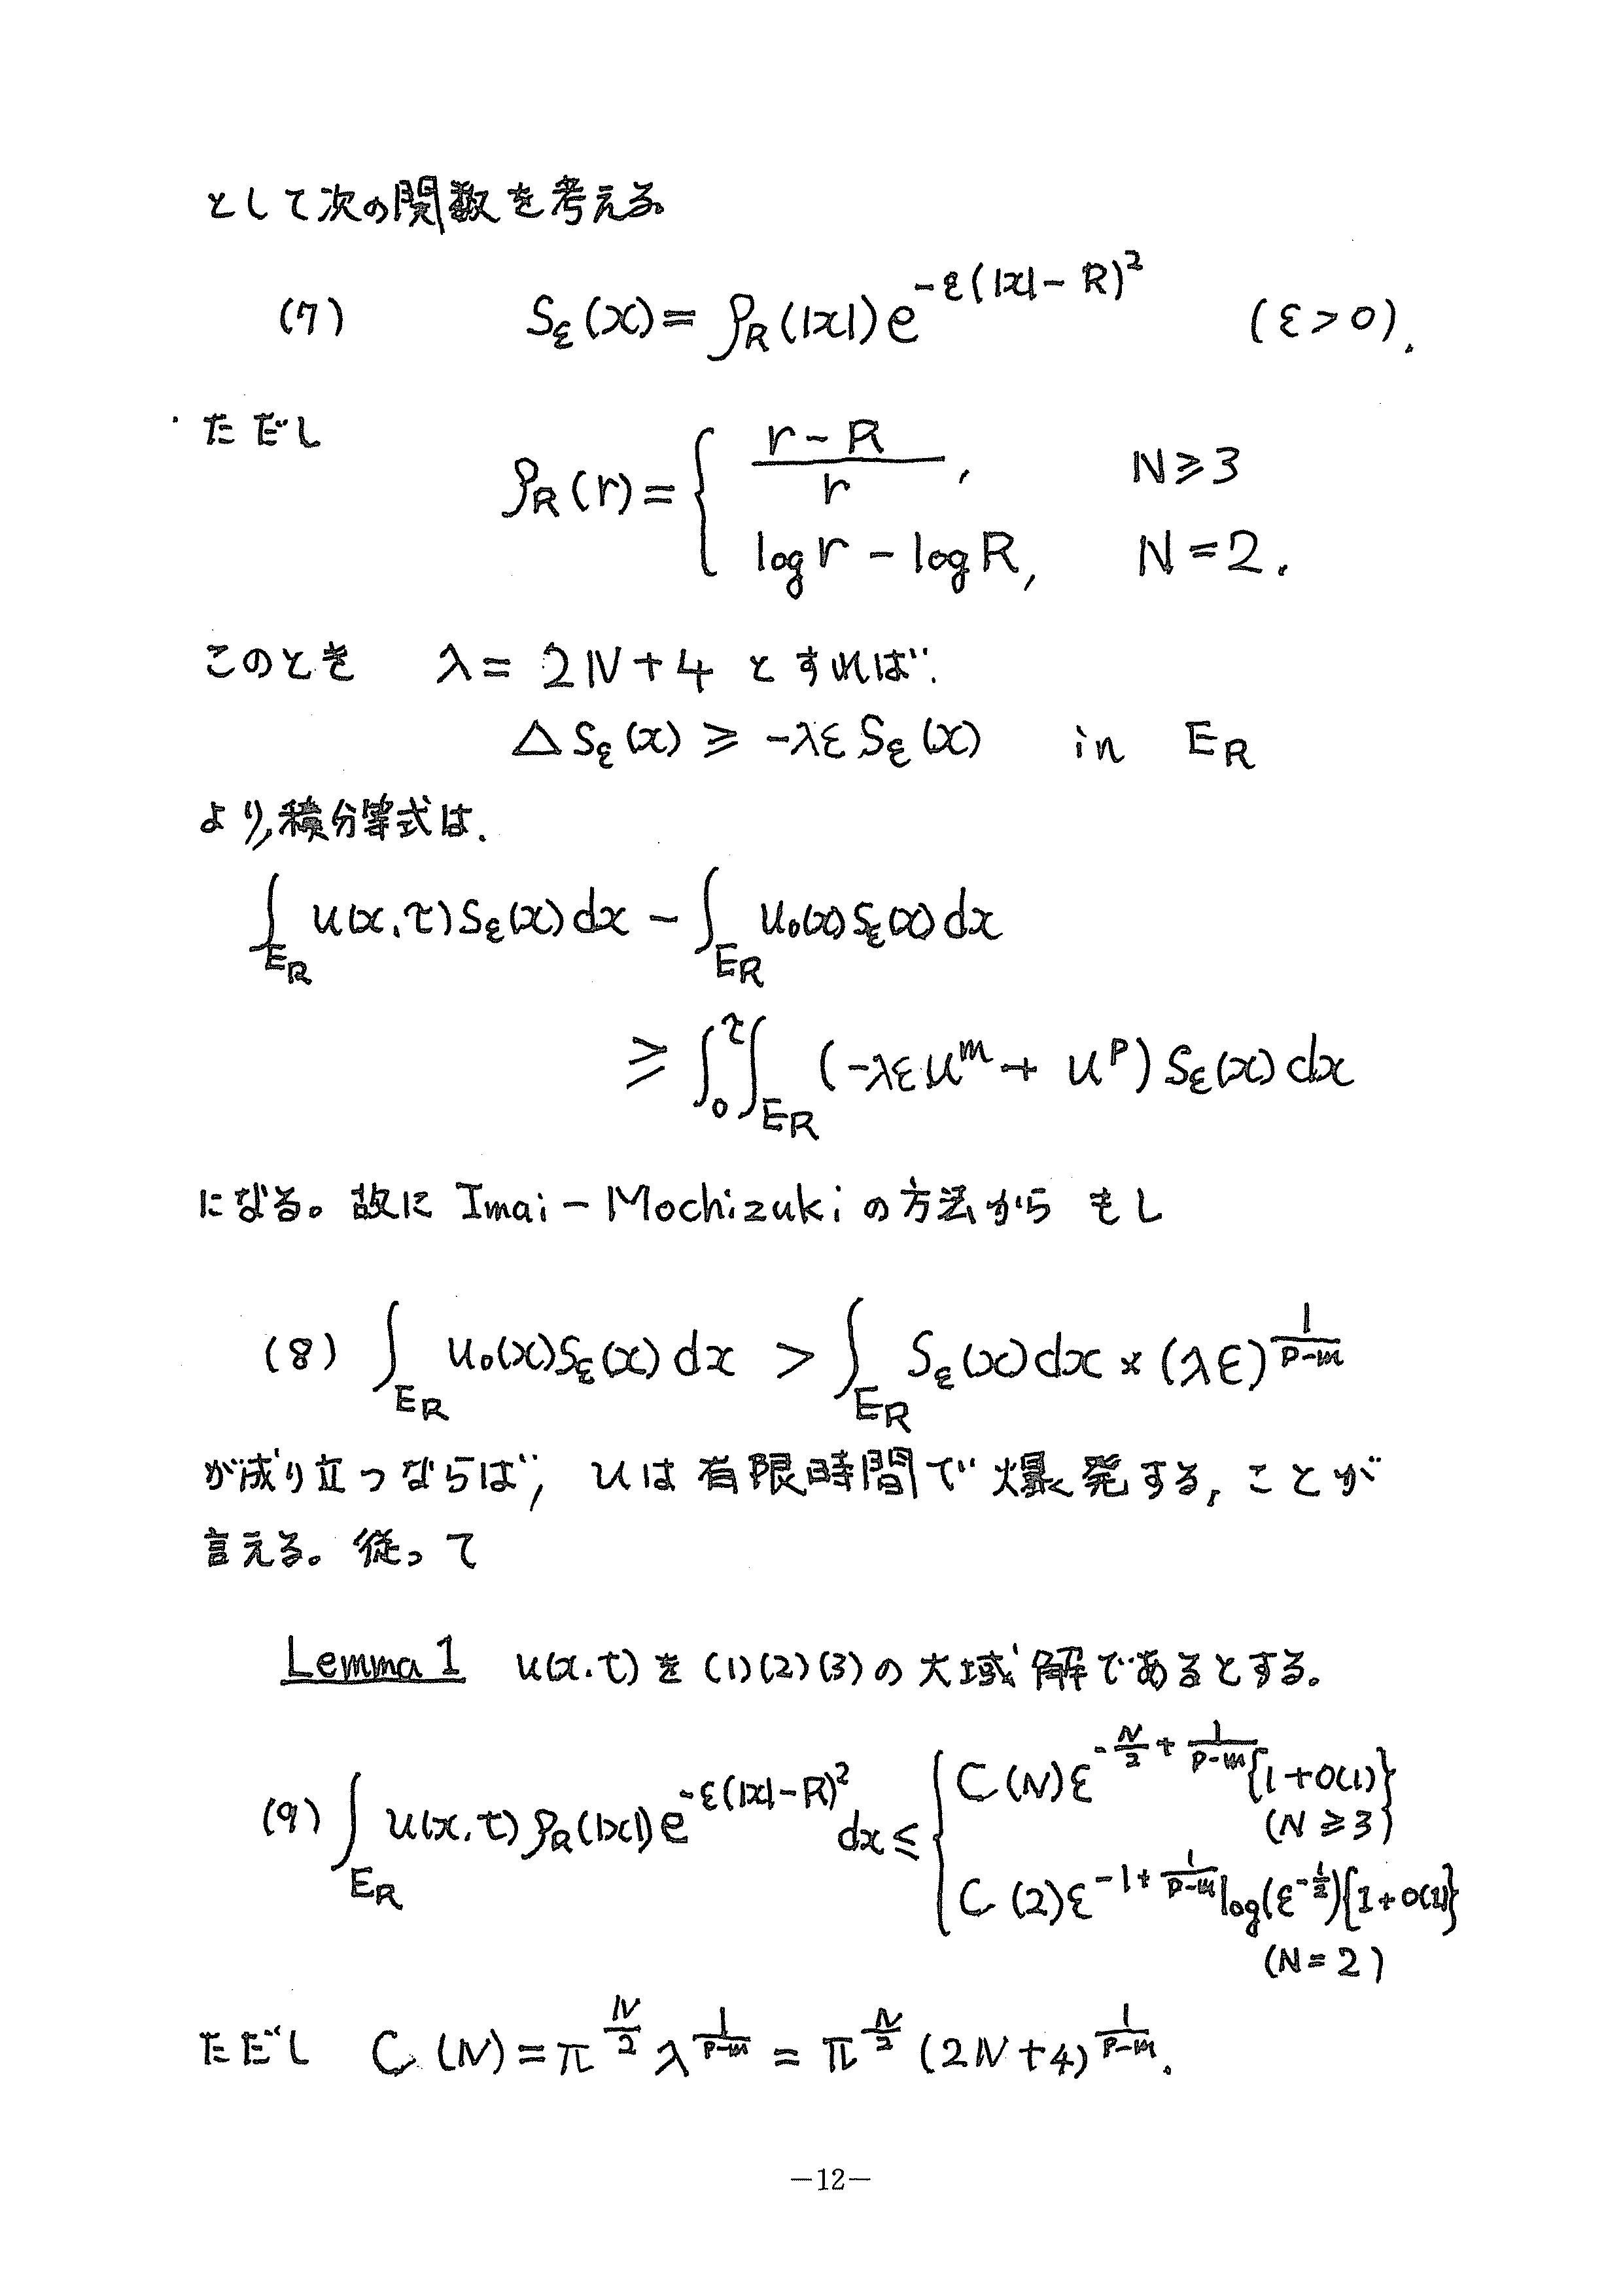 として次の関数を考える。
(7) S_ε(x) = ρ_R(|x|)e^{-ε(|x|-R)^2} (ε>0).
ただし
ρ_R(r) = { (r-R)/r , N≥3
log r - log R, N=2.
このとき λ= 2N+4 とすれば.
△S_ε(x) ≥ -λε S_ε(x) in E_R
より,積分等式は.
∫_{E_R} u(x.τ)S_ε(x)dx - ∫_{E_R} u_0(x)S_ε(x)dx
≥ ∫_0^τ ∫_{E_R} (-λεu^m + u^p) S_ε(x)dx
になる。故に Imai-Mochizukiの方法から もし
(8) ∫_{E_R} u_0(x)S_ε(x)dx > ∫_{E_R} S_ε(x)dx × (λε)^{1/(p-m)}
が成り立つならば, uは有限時間で爆発する, ことが
言える。従って
Lemma 1 u(x.t)を(1)(2)(3)の大域解であるとする。
(9) ∫_{E_R} u(x.t)ρ_R(|x|)e^{-ε(|x|-R)^2} dx ≤ { C(N)ε^{-N/2 + 1/(p-m)}{1+o(1)}
(N≥3)
C(2)ε^{-1+1/(p-m)} log(ε^{-1/2}){1+o(1)}
(N=2)
ただし C(N)=π^{N/2} λ^{1/(p-m)} = π^{N/2} (2N+4)^{1/(p-m)}.
—12—